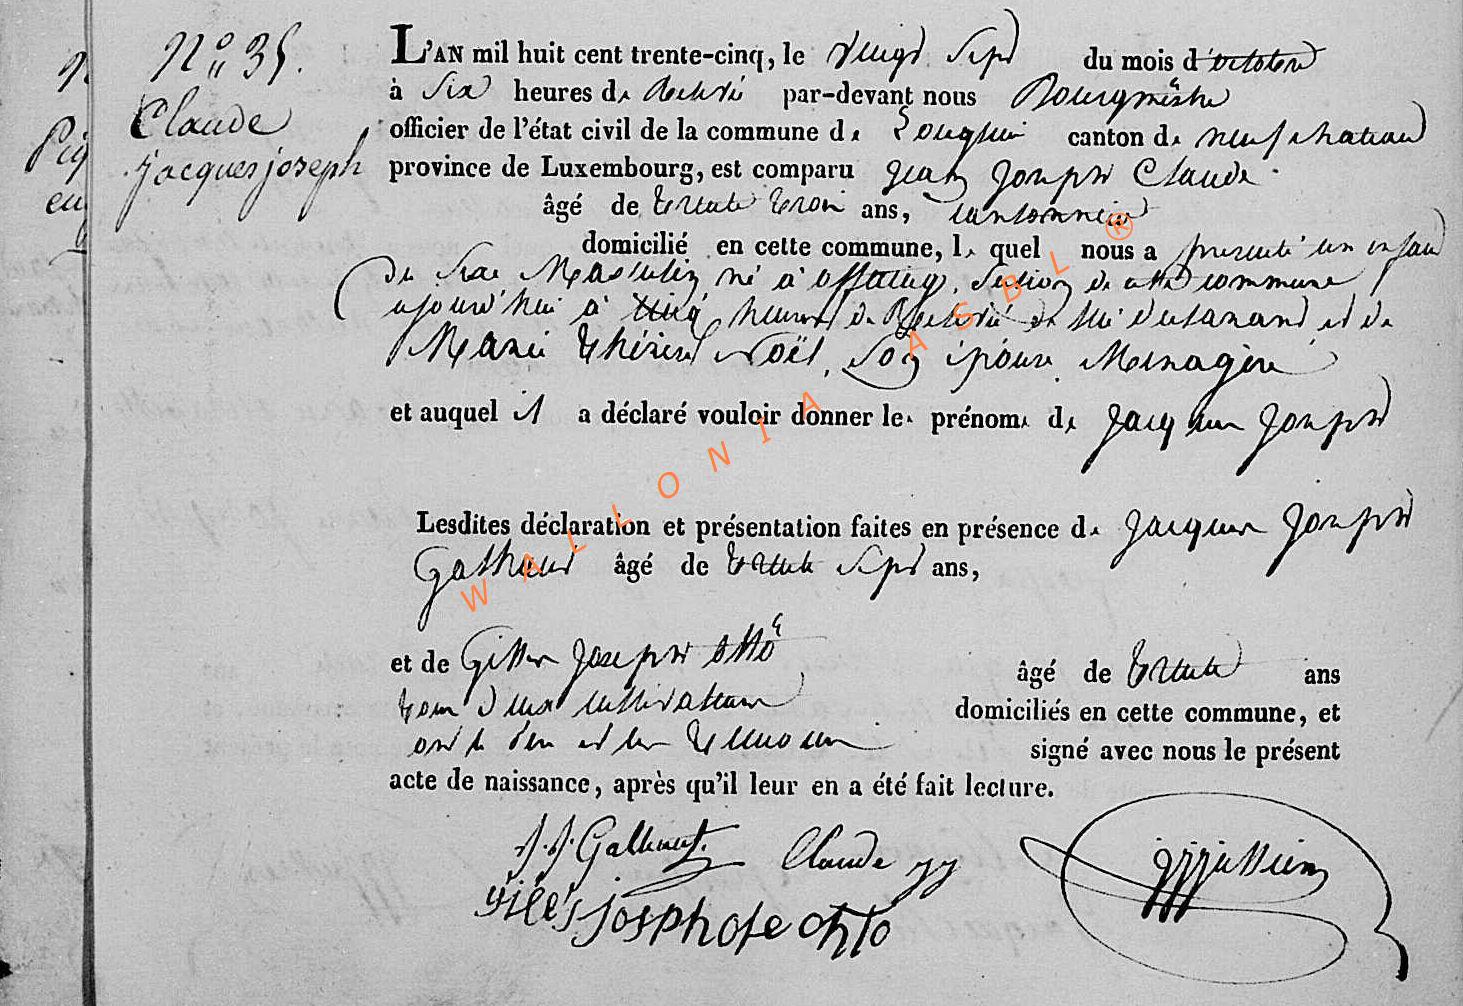 N° 35.
Claude
jacques joseph
L'AN mil huit cent trente-cinq, le vingt Sept du mois d'octobre
à Six heures de Relevée par-devant nous Bourgmestre
officier de l'état civil de la commune de canton de neufchateau
province de Luxembourg, est comparu Jean Joseph Claude
âgé de trente trois ans, cantonnier
domicilié en cette commune, lequel nous a presenté un enfant
du Sexe Masculin né à offaing, Section de cette commune
ajourd'hui à heures de Relevée de lui declarant et de
Marie thérèse Noël, Son épouse Menagère
et auquel il a déclaré vouloir donner les prénoms de Jacques Joseph
Lesdites déclaration et présentation faites en présence de Jacques Joseph
âgé de trente Sept ans,
et de Gilles Joseph otto âgé de trente ans
tous deux cultivateurs domiciliés en cette commune, et
ont le père et les temoins signé avec nous le présent
acte de naissance, après qu'il leur en a été fait lecture.
J. J. Claude JJ
WALLONIA ASBL ®